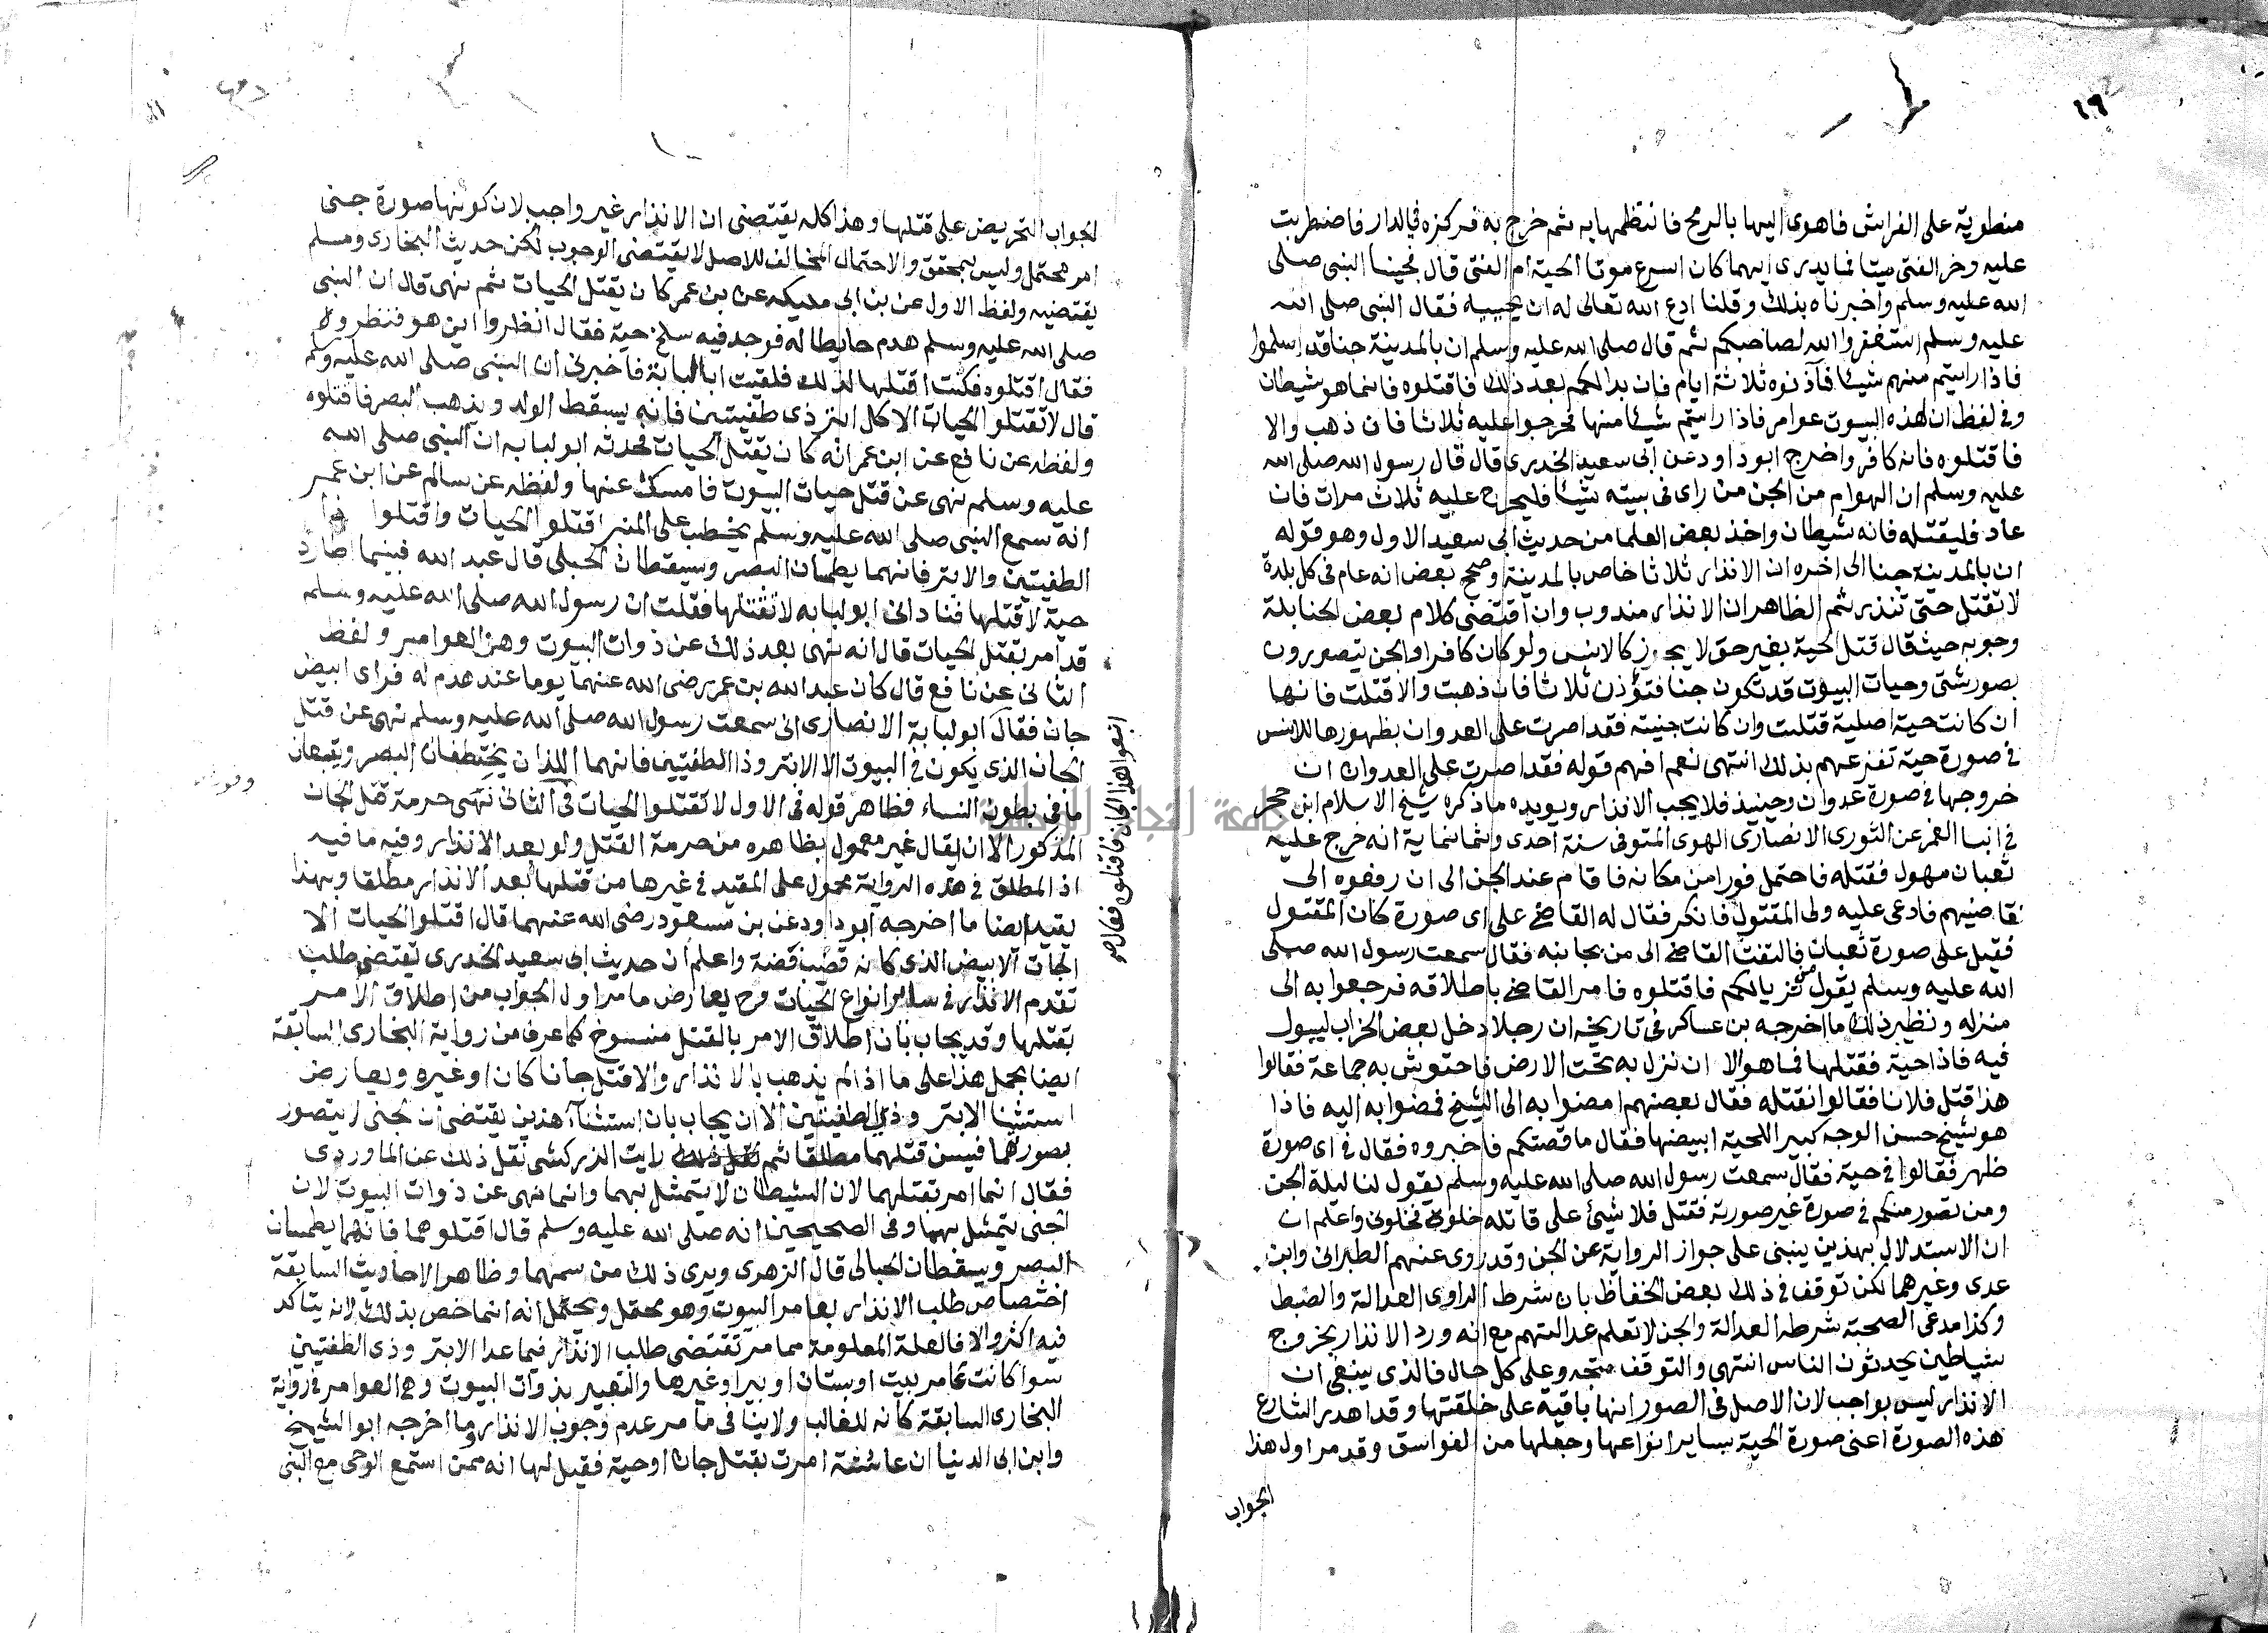 ١٩
منطوية على الفراش فاهوى اليها بالرمح فانتظمها به ثم خرج به فركزه في الدار فاضطربت
عليه وخر الفتى ميتا فما يدرى ايهما كان اسرع موتا الحية ام الفتى قال فجينا النبى صلى
الله عليه وسلم واخبرناه بذلك وقلنا ادع الله تعالى له ان يحييه فقال النبى صلى الله
عليه وسلم استغفروا الله لصاحبكم ثم قال صلى الله عليه وسلم ان بالمدينة جنا قد اسلموا
فاذا رايتم منهم شيئا فآذنوه ثلاثة ايام فان بدا لكم بعد ذلك فاقتلوه فانما هو شيطان
وفى لفظ ان لهذه البيوت عوامر فاذا رايتم شيئا منها فحرجوا عليه ثلاثا فان ذهب والا
فاقتلوه فانه كافر واخرج ابو داود عن ابى سعيد الخدرى قال قال رسول الله صلى الله
عليه وسلم ان الهوام من الجن من راى فى بيته شيئا فليحرج عليه ثلاث مرات فان
عاد فليقتله فانه شيطان واخذ بعض العلما من حديث ابى سعيد الاول وهو قوله
ان بالمدينة جنا الى اخره ان الانذار ثلاثا خاص بالمدينة وصحح بعض انه عام فى كل بلدة
لا تقتل حتى تنذر ثم الظاهر ان الانذار مندوب وان اقتضى كلام بعض الحنابلة
وجوبه حيث قال قتل الحية بغير حق لا يجوز كالانس ولو كان كافرا والجن يتصورون
بصور شتى وحيات البيوت قد تكون جنا فتؤذن ثلاثا فان ذهبت والا قتلت فانها
ان كانت حية اصلية قتلت وان كانت جنية فقد اصرت على العدوان بظهورها للانس
فى صورة حية تفزعهم بذلك انتهى نعم افهم قوله فقد اصرت على العدوان ان
خروجها فى صورة عدوان وحينيذ فلا يجب الانذار ويويده ما ذكره شيخ الاسلام ابن حجر
فى انبا الغمر عن الثورى الانصارى الهوى المتوفى سنة احدى وثمانماية انه خرج عليه
ثعبان مهول فقتله فاحتمل فورا من مكانه فاقام عند الجن الى ان رفعوه الى
قاضيهم فادعى عليه ولى المقتول فانكر فقال له القاضى على اى صورة كان المقتول
فقيل على صورة ثعبان فالتفت القاضى الى من بجانبه فقال سمعت رسول الله صلى
الله عليه وسلم يقول من تزيا لكم فاقتلوه فامر القاضى باطلاقه فرجعوا به الى
منزله ونظير ذلك ما اخرجه بن عساكر فى تاريخه ان رجلا دخل بعض الخراب ليبول
فيه فاذا حية فقتلها فما هو الا ان نزل به تحت الارض فاحتوش به جماعة فقالوا
هذا قتل فلانا فقالوا نقتله فقال بعضهم امضوا به الى الشيخ فمضوا به اليه فاذا
هو شيخ حسن الوجه كبير اللحية ابيضها فقال ما قصتكم فاخبروه فقال فى اى صورة
ظهر فقالوا فى حية فقال سمعت رسول الله صلى الله عليه وسلم يقول لنا ليلة الجن
ومن تصور منكم فى صورة غير صورته فقتل فلا شيئ على قاتله خلوه فخلونى واعلم ان
ان الاستدلال بهذين ينبنى على جواز الرواية عن الجن وقد روى عنهم الطبرانى وابن
عدى وغيرهما لكن توقف فى ذلك بعض الحفاظ بان شرط الراوى العدالة والضبط
وكذا مدعى الصحبة شرطه العدالة والجن لا تعلم عدالتهم مع انه ورد الانذار بخروج
شياطين يحدثون الناس انتهى والتوقف متجه وعلى كل حال فالذى ينبغى ان
الانذار ليس بواجب لان الاصل فى الصور انها باقية على خلقتها وقد اهدر الشارع
هذه الصورة اعنى صورة الحية بساير انواعها وجعلها من الفواسق وقد مر اول هذا
الجواب
لجواب التحريض على قتلها وهذا كله يقتضى ان الانذار غير واجب لان كونها صورة جنى
امر محتمل وليس بمحقق والاحتمال المخالف للاصل لا يقتضى الوجوب لكن حديث البخارى ومسلم
يقتضيه ولفظ الاول عن بن ابى مليكه عن بن عمر كان يقتل الحيات ثم نهى قال ان النبى
صلى الله عليه وسلم هدم حايطا له فوجد فيه سلخ حية فقال انظروا اين هو فنظروا
فقال اقتلوه فكنت اقتلها لذلك فلقيت ابا لبابة فاخبرنى ان النبى صلى الله عليه وسلم
قال لا تقتلو الحيات الا كل ابتر ذى طفيتين فانه يسقط الولد ويذهب البصر فاقتلوه
ولفظه عن نافع عن ابن عمر انه كان يقتل الحيات فحدثه ابو لبابه ان النبى صلى الله
عليه وسلم نهى عن قتل حيات البيوت فامسك عنها ولفظه عن سالم عن ابن عمر
انه سمع النبى صلى الله عليه وسلم يخطب على المنبر اقتلو الحيات واقتلوا ذا
الطفيتين والابتر فانهما يطمسان البصر ويسقطان الحبلى قال عبد الله فبينما اطارد
حية لاقتلها فنادانى ابو لبابه لا تقتلها فقلت ان رسول الله صلى الله عليه وسلم
قد امر بقتل الحيات قال انه نهى بعد ذلك عن ذوات البيوت وهن العوامر ولفظ
الثانى عن نافع قال كان عبد الله بن عمر رضى الله عنهما يوما عند هدم له فراى ابيض
جان فقال ابو لبابة الانصارى انى سمعت رسول الله صلى الله عليه وسلم نهى عن قتل
الجان الذى يكون فى البيوت الا الابتر وذا الطفيتين فانهما اللذان يختطفان البصر ويتبعان
ما فى بطون النساء فظاهر قوله فى الاول لا تقتلوا الحيات فى الثانى نهى حرمة قتل الجان
المذكور الا ان يقال غير معمول بظاهره من حرمة القتل ولو بعد الانذار وفيه ما فيه
اذ المطلق فى هذه الرواية محمول على المقيد فى غيرها من قتلها بعد الانذار مطلقا وبهذا
يقيد ايضا ما اخرجه ابو داود عن بن مسعود رضى الله عنهما قال اقتلو الحيات الا
الجان الابيض الذى كانه قضيب فضة واعلم ان حديث ابى سعيد الخدرى يقتضى طلب
تقدم الانذار فى ساير انواع الحيات وح يعارض ما مر اول الجواب من اطلاق الامر
بقتلها وقد يجاب بان اطلاق الامر بالقتل منسوخ كما عرف من رواية البخارى السابقة
ايضا يحمل هذا على ما اذا لم يذهب بالانذار والا قتل جانا كان او غيره ويعارض
استثنا الابتر وذى الطفيتين الا ان يجاب بان استثناآ هذين يقتضى ان لجنى لا يتصور
بصورهما فيسن قتلهما مطلقا ثم رايت الزركشى نقل ذلك عن الماوردى
فقال انما امر بقتلهما لان الشيطان لا يتمثل بهما وانما نهى عن ذوات البيوت لان
لجنى يتمثل بهما وفى الصحيحين انه صلى الله عليه وسلم قال اقتلوهما فانهما يطمسان
البصر ويسقطان الحبالى قال الزهرى ويرى ذلك من سمهما وظاهر الاحاديث السابقة
اختصاص طلب الانذار بعامر البيوت وهو محتمل ويحتمل انه انما خص بذلك لانه يتاكد
فيه اكثر والا فالعلة المعلومة مما مر تقتضى طلب الانذار فيما عدا الابتر وذى الطفيتين
سوا كانت عامر بيت او بستان او بير او غيرها والتعبير بذوات البيوت وهى العوامر فى رواية
البخارى السابقة كانه للغالب ولا ينافى ما مر عدم وجوب الانذار وما اخرجه ابو الشيخ
وابن ابى الدنيا ان عائشة امرت بقتل جان او حية فقيل لها انه ممن استمع الوحى مع النبى
اتبعوا هذا الجان فاقتلوه فقال